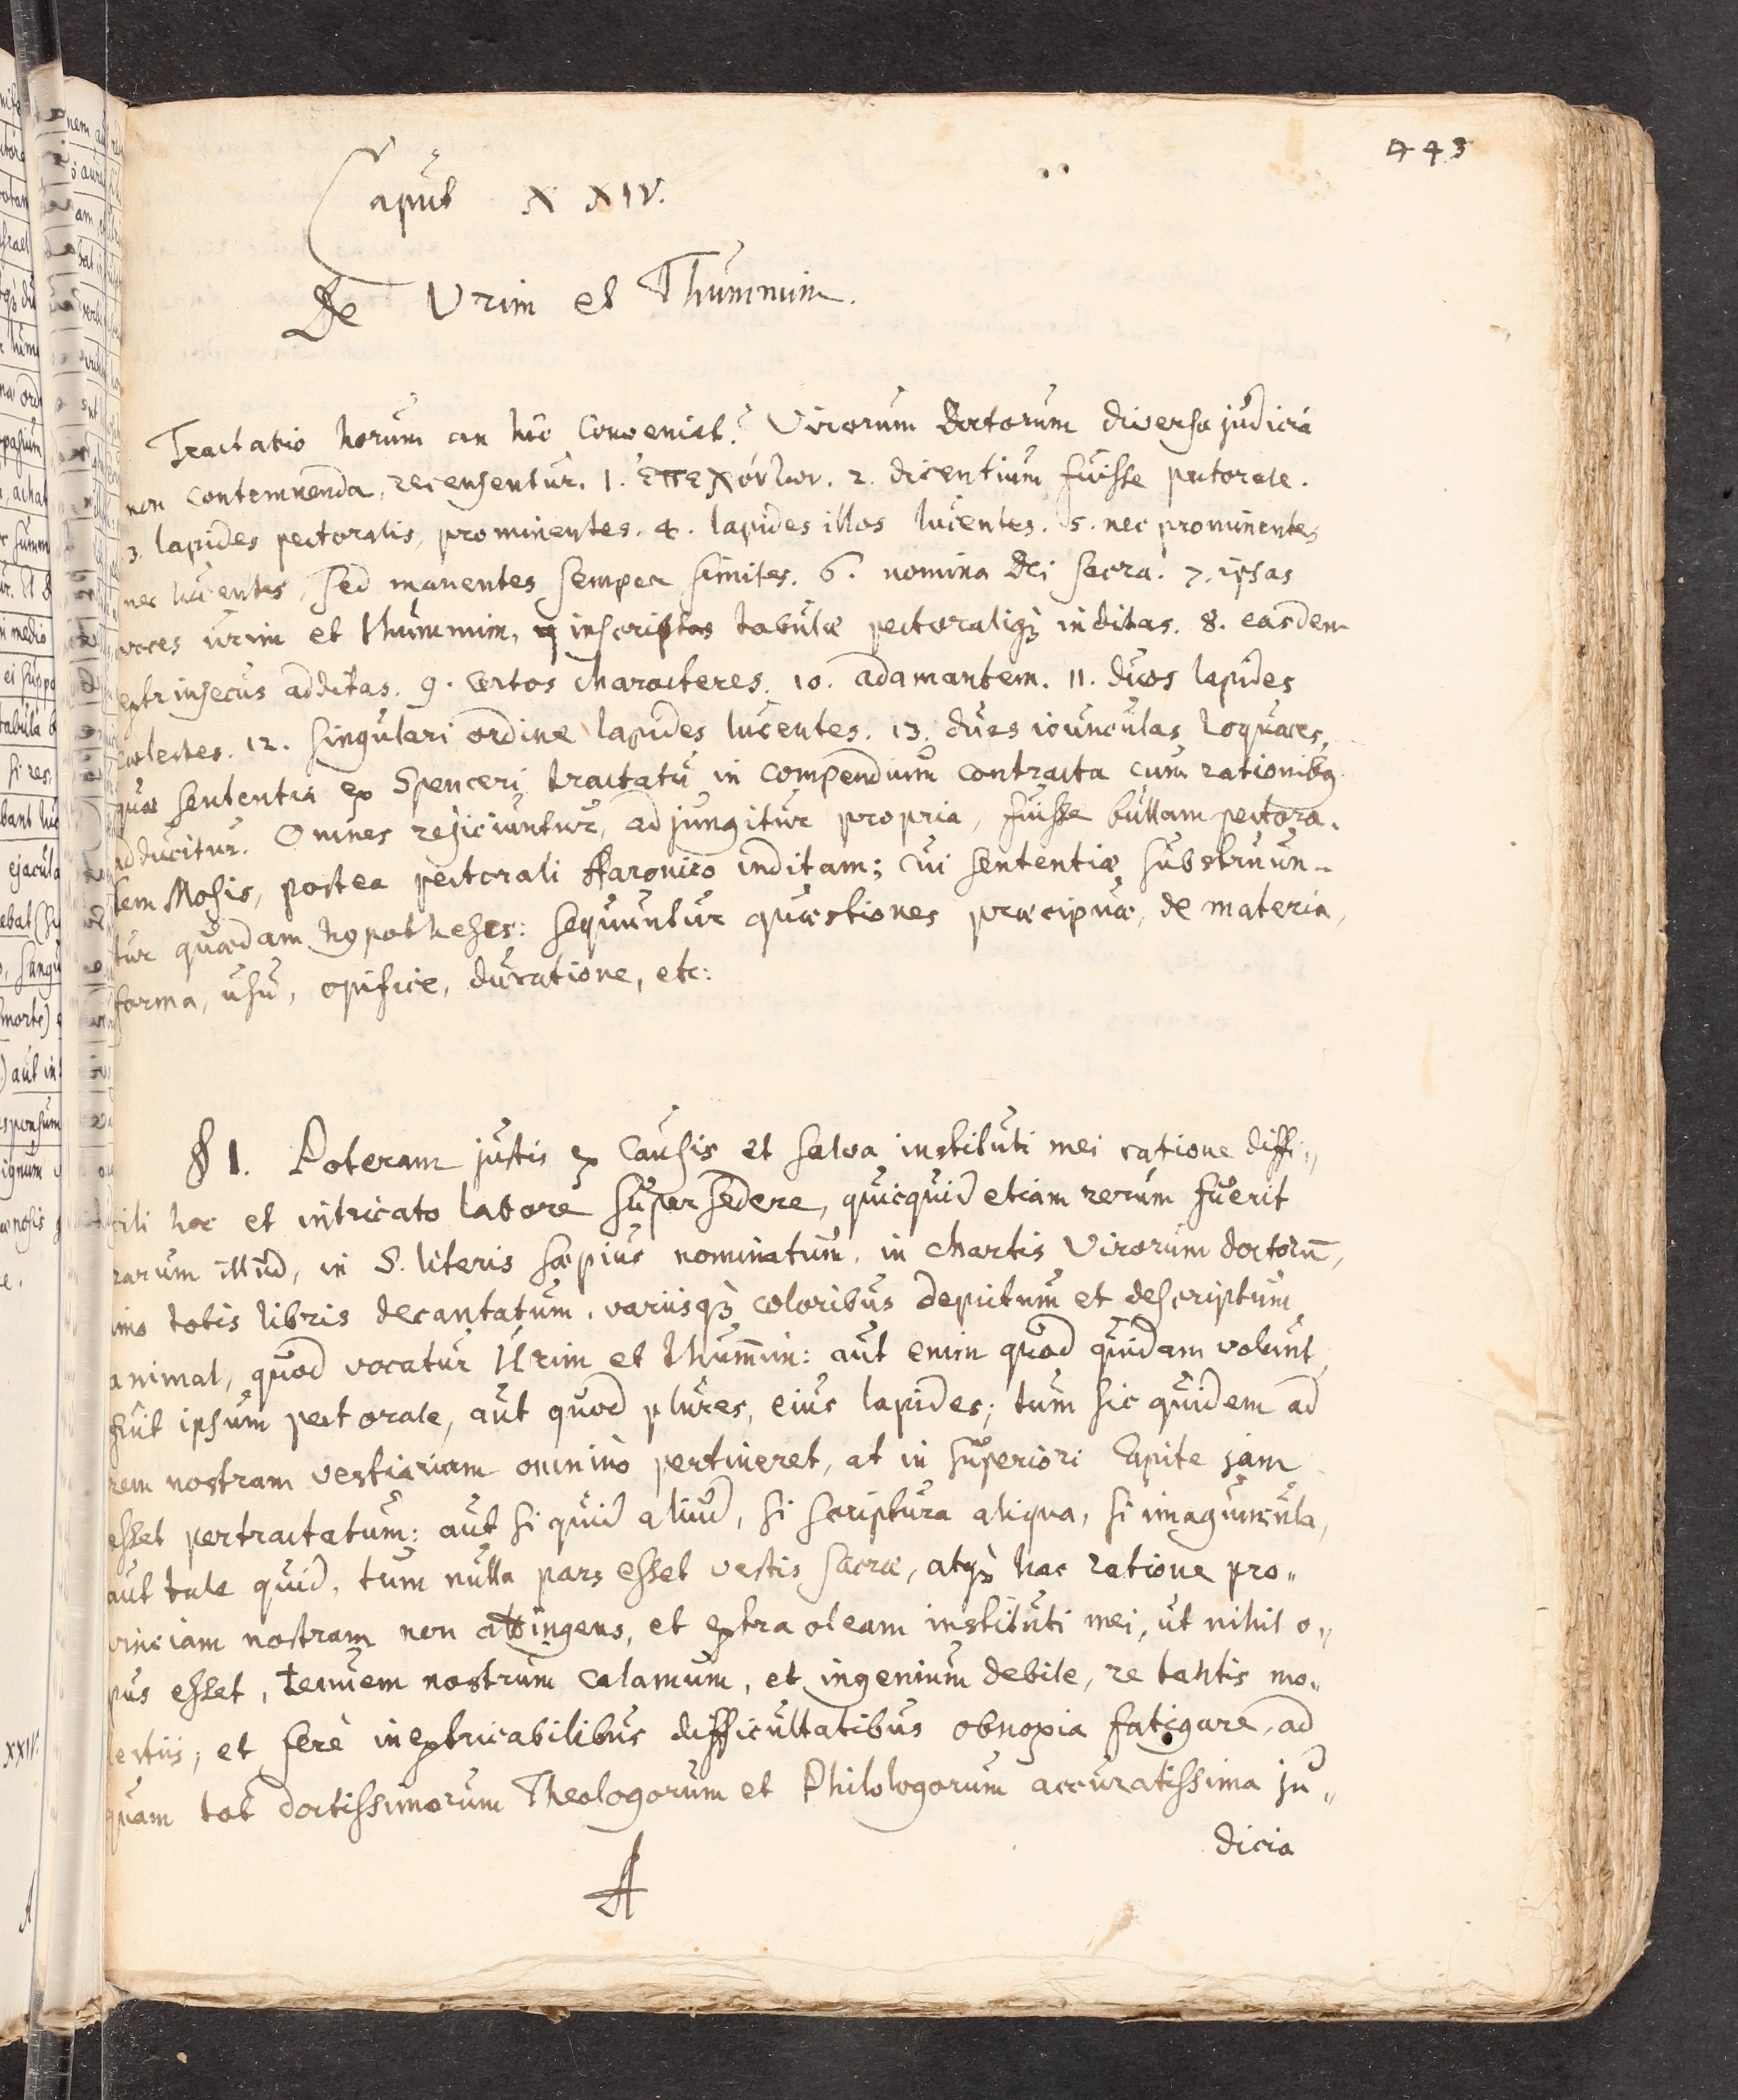 443
Caput XXIV.
De Urim et Thummim.
Tractatio horum an huc conveniat? Virorum Doctorum diversa judicia
non contemnenda, recensentur. 1. ἐπεχόντων. 2. dicentium fuisse pectorale.
3. lapides pectoralis, prominentes. 4. lapides illos lucentes. 5. nec prominentes
nec lucentes, sed manentes semper similes. 6. nomina Dei sacra. 7. ipsas
voces urim et thummim, inscriptas tabulæ pectoraliq; inditas. 8. easdem
extrinsecus additas. 9. certos characteres. 10. adamantem. 11. duos lapides
coelestes. 12. singulari ordine lapides lucentes. 13. duas icunculas loquaces,
quæ sententia ex Spenceri tractatu in compendium contracta cum rationibq
adducitur. Omnes rejiciuntur, adjungitur propria, fuisse bullam pectora-
lem Mosis, postea pectorali Aaronico inditam; cui sententiæ substruun-
tur quædam hypotheses: sequuntur quæstiones præcipuæ, de materia,
forma, usu, opifice, duratione, etc:
§ 1. Poteram justis ex causis et salva instituti mei ratione diffi-
cili hoc et intricato labore supersedere, quicquid etiam rerum fuerit
rarum illud, in S. literis sæpius nominatum, in chartis Virorum doctorū,
imo totis libris decantatum, variisq; coloribus depictum et descriptum
animal, quod vocatur Urim et thum̄im: aut enim quod quidam volunt,
fuit ipsum pectorale, aut quod plures, eius lapides; tum sic quidem ad
rem nostram vestiariam omninò pertineret, at in superiori Capite jam
esset pertractatum: aut si quid aliud, si scriptura aliqua, si imaguncula,
aut tale quid, tum nulla pars esset vestis sacræ, atq; hac ratione pro-
vinciam nostram non attingens, et extra oleam instituti mei, ut nihil o-
pus esset, tenuem nostrum calamum, et ingenium debile, re tantis mo-
lestiis, et ferè inextricabilibus difficultatibus obnoxia fatigare, ad
quam tot doctissimorum Theologorum et Philologorum accuratissima ju-
dicia